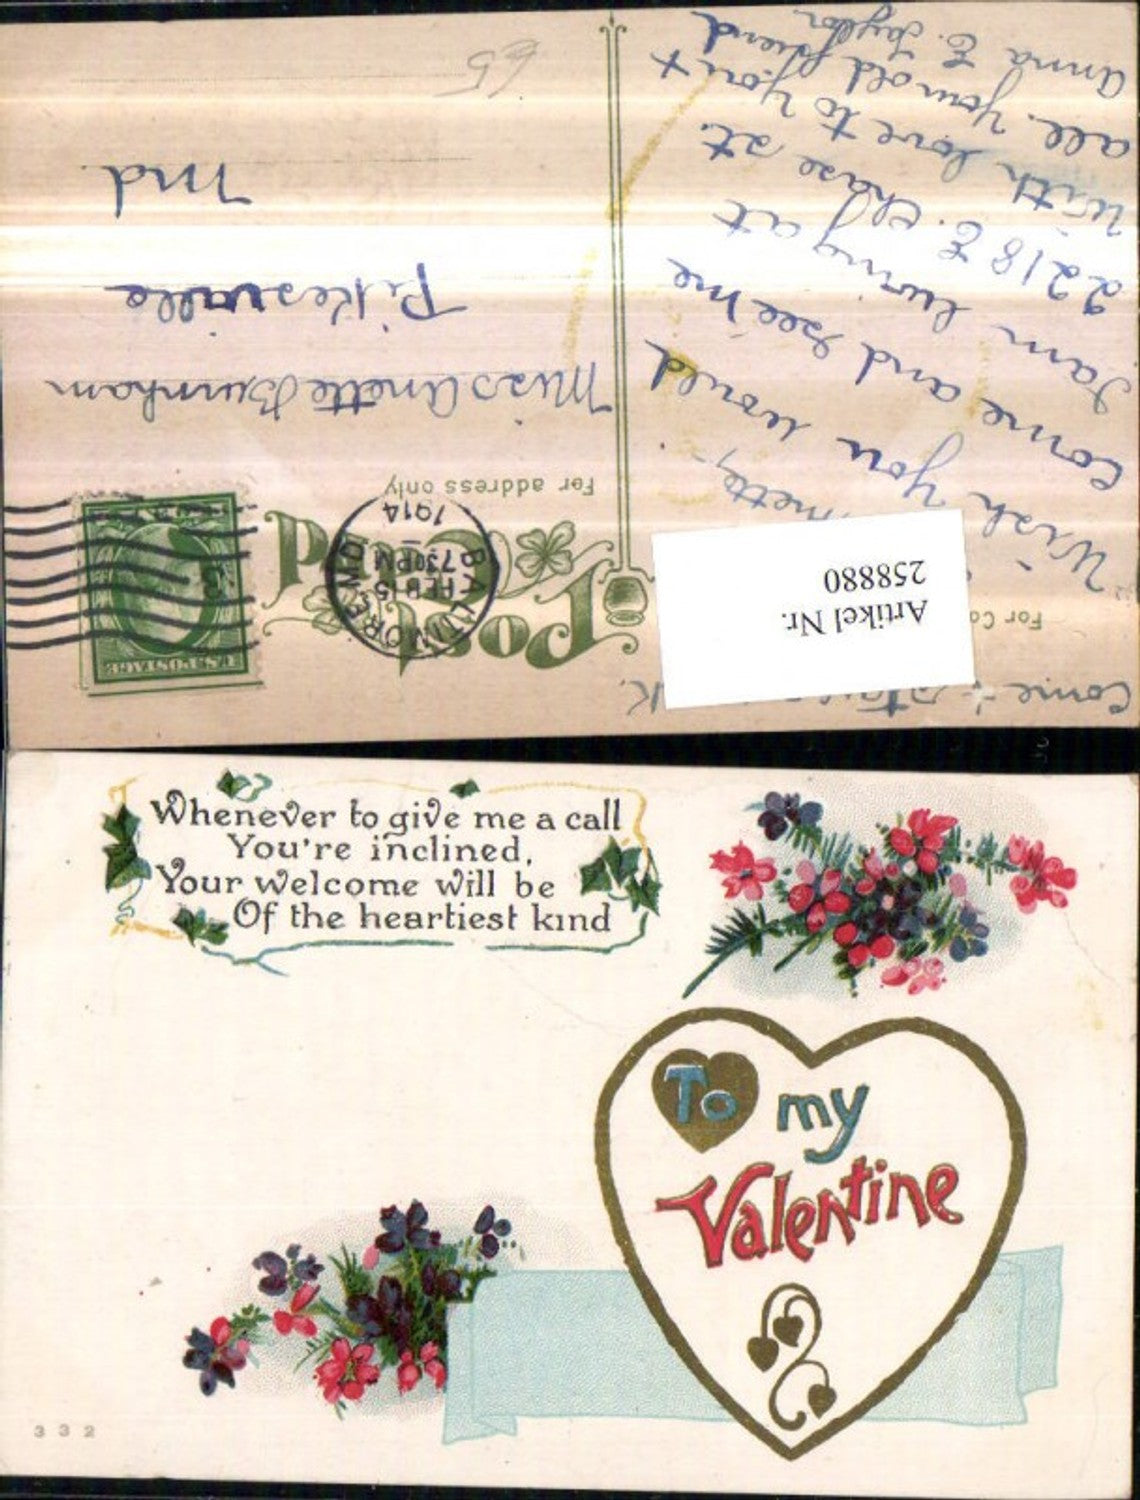 Come + stay K.
For Co
Artikel Nr.
258880
Post Card
For address only
BALTIMORE, MD.
FEB 15
730 PM
1914
U.S. POSTAGE
Wish you would
come and see me
I am living at
2218 E. Chase at.
With love to you +
all. Your old friend
Anna E. Taylor
Miss Anette Burnham
Pikesville
Md.
65
Whenever to give me a call
You're inclined,
Your welcome will be
Of the heartiest kind
To my
Valentine
332